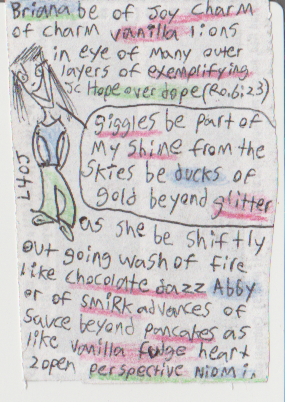 Briana be of Joy Charm
of charm vanilla lions
in eye of many outer
layers of exemplifying
JC Hope over dope (Ro.6;23)
giggles be part of
my shine from the
skies be ducks of
gold beyond glitter
L405
as she be shiftly
out going wash of fire
like chocolate Jazz Abby
or of smirk advances of
sauce beyond pancakes as
like vanilla fudge heart
2open perspective Niomi.